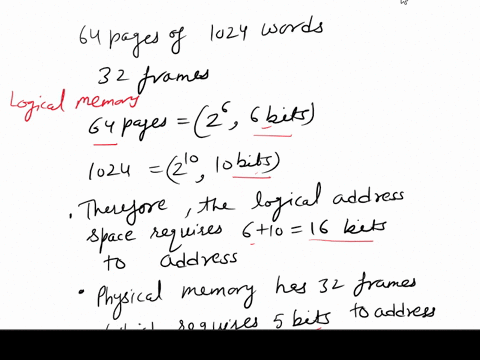 64 pages of 1024 words
32 frames
Logical memory
64 pages = (2^6, 6 bits)
1024 = (2^10, 10 bits)
• Therefore, the logical address
space requires 6+10 = 16 bits
to address
• Physical memory has 32 frames
which requires 5 bits to address